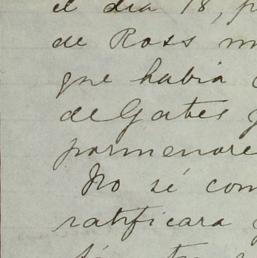 el día 18, p
de Ross m
que había
de Gates y
pormenore
No sé com
ratificara y